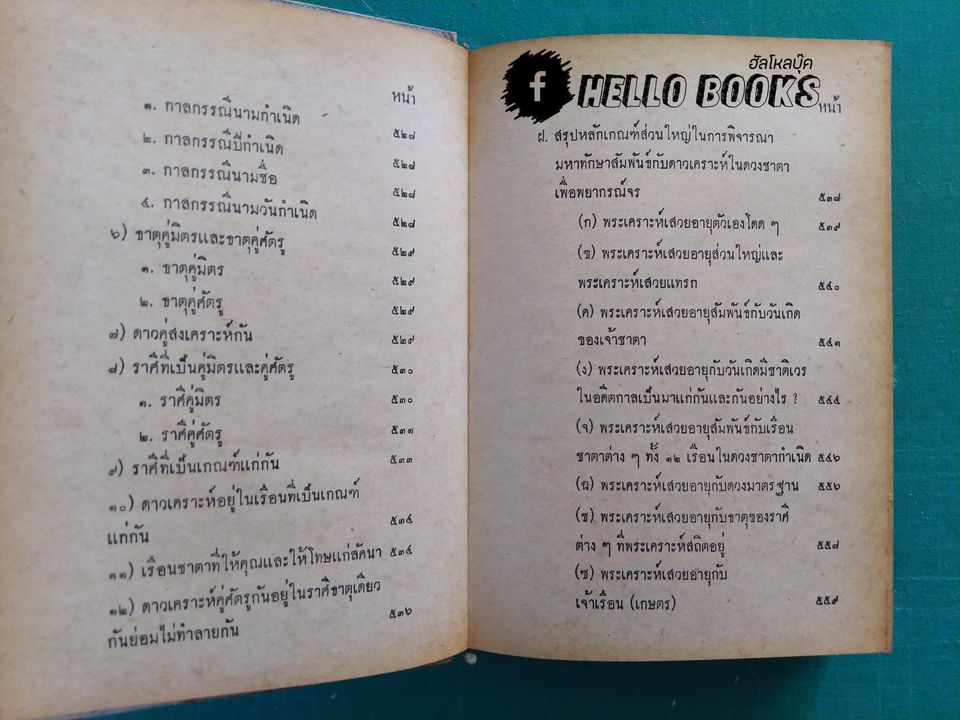 หน้า
๑. กาลกรรณีนามกำเนิด ๕๒๘
๒. กาลกรรณีปีกำเนิด ๕๒๘
๓. กาลกรรณีนามชื่อ ๕๒๘
๔. กาลกรรณีนามวันกำเนิด ๕๒๘
๖) ธาตุคู่มิตรและธาตุคู่ศัตรู ๕๒๙
๑. ธาตุคู่มิตร ๕๒๙
๒. ธาตุคู่ศัตรู ๕๒๙
๗) ดาวคู่สงเคราะห์กัน ๕๒๙
๘) ราศีที่เป็นคู่มิตรและคู่ศัตรู ๕๓๐
๑. ราศีคู่มิตร ๕๓๐
๒. ราศีคู่ศัตรู ๕๓๑
๙) ราศีที่เป็นเกณฑ์แก่กัน ๕๓๓
๑๐) ดาวเคราะห์อยู่ในเรือนที่เป็นเกณฑ์
แก่กัน ๕๓๔
๑๑) เรือนชาตาที่ให้คุณและให้โทษแก่ลัคนา ๕๓๔
๑๒) ดาวเคราะห์คู่ศัตรูกันอยู่ในราศีธาตุเดียว
กันย่อมไม่ทำลายกัน ๕๓๖
ฮัลโหลบุ๊ค
f HELLO BOOKS
หน้า
ฝ. สรุปหลักเกณฑ์ส่วนใหญ่ในการพิจารณา
มหาทักษาสัมพันธ์กับดาวเคราะห์ในดวงชาตา
เพื่อพยากรณ์จร ๕๓๘
(ก) พระเคราะห์เสวยอายุตัวเองโดด ๆ ๕๓๙
(ข) พระเคราะห์เสวยอายุส่วนใหญ่และ
พระเคราะห์เสวยแทรก ๕๔๐
(ค) พระเคราะห์เสวยอายุสัมพันธ์กับวันเกิด
ของเจ้าชาตา ๕๔๑
(ง) พระเคราะห์เสวยอายุกับวันเกิดมีชาติเวร
ในอดีตกาลเป็นมาแก่กันและกันอย่างไร ? ๕๔๔
(จ) พระเคราะห์เสวยอายุสัมพันธ์กับเรือน
ชาตาต่าง ๆ ทั้ง ๑๒ เรือนในดวงชาตากำเนิด ๕๔๖
(ฉ) พระเคราะห์เสวยอายุกับดวงมาตรฐาน ๕๕๖
(ช) พระเคราะห์เสวยอายุกับธาตุของราศี
ต่าง ๆ ที่พระเคราะห์สถิตอยู่ ๕๕๘
(ซ) พระเคราะห์เสวยอายุกับ
เจ้าเรือน (เกษตร) ๕๕๙